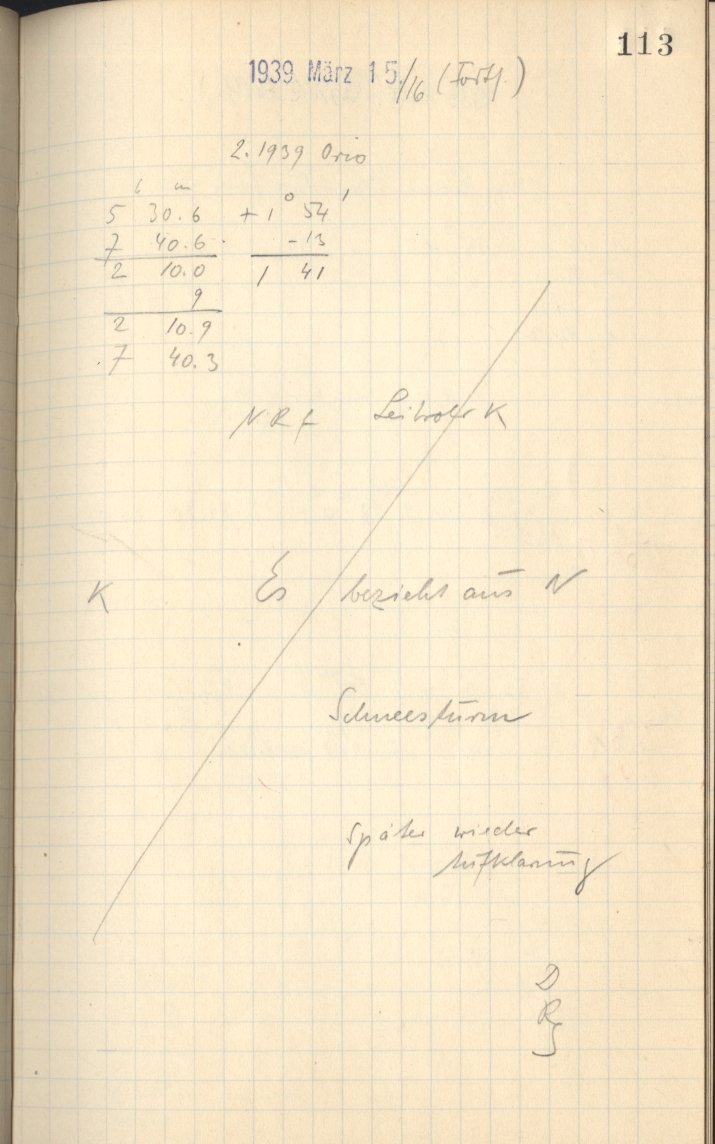 113
1939 März 15./16 (Forts.)
2.1939 Orio
h m
5 30.6 +1° 54'
7 40.6 -13
2 10.0 1 41
9
2 10.9
7 40.3
NRf Leitrohr K
K Es bezieht aus N
Schneesturm
Später wieder
Aufklarung
D
R